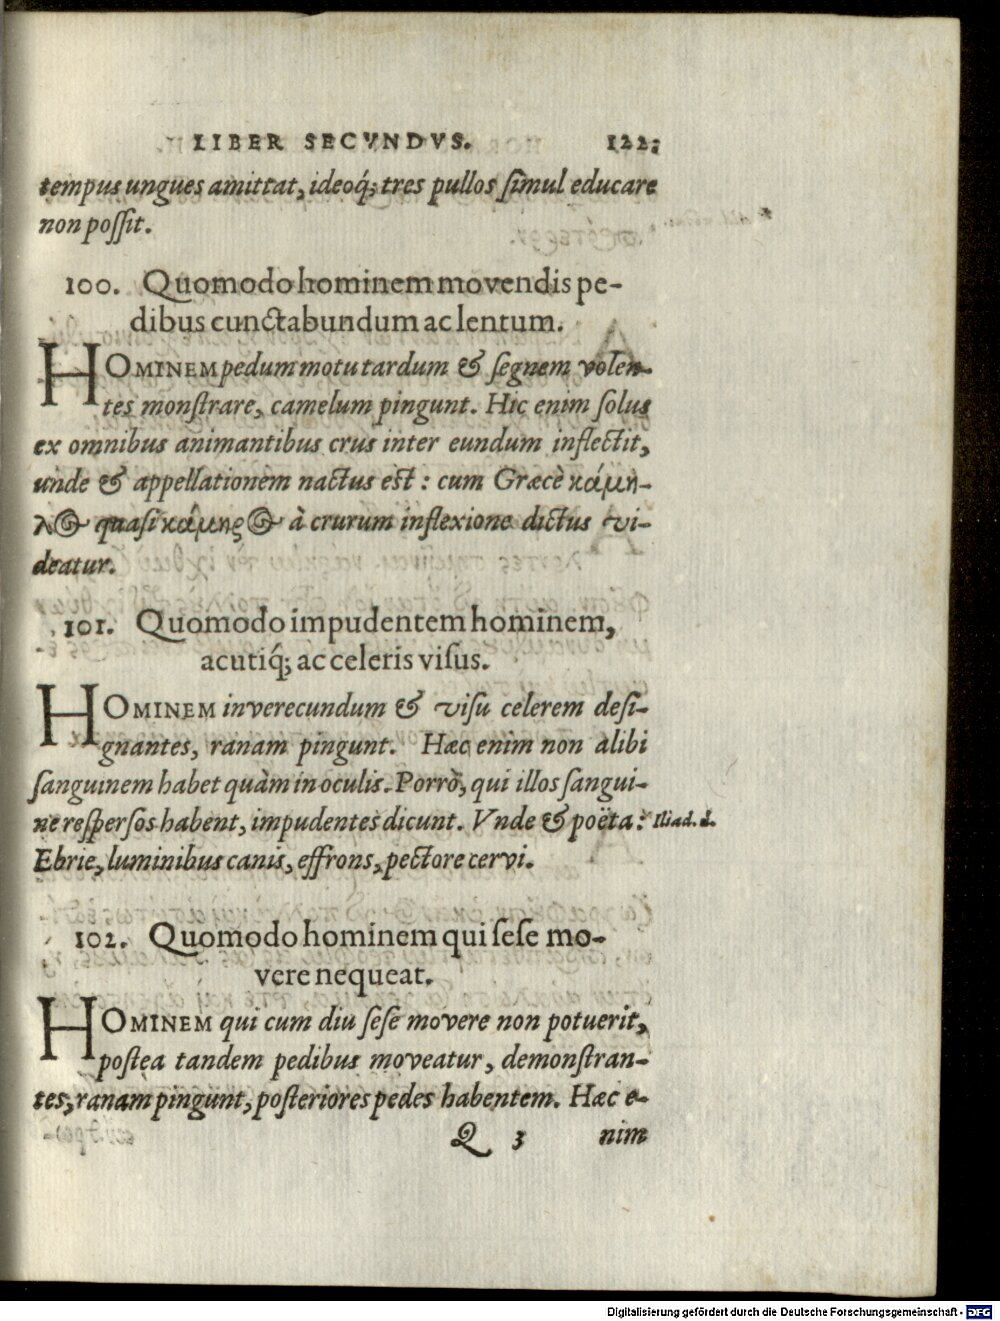 LIBER SECVNDVS. 122;
tempus ungues amittat, ideoq́; tres pullos ſimul educare
non poſſit.
100. Quomodo hominem movendis pe-
dibus cunctabundum ac lentum.
HOMINEM pedum motu tardum & ſegnem volen-
tes monſtrare, camelum pingunt. Hic enim ſolus
ex omnibus animantibus crus inter eundum inflectit,
unde & appellationem nactus eſt: cum Græcè κάμη-
λ𐅵 quaſi κάμηρ𐅵 à crurum inflexione dictus vi-
deatur.
101. Quomodo impudentem hominem,
acutiq́; ac celeris viſus.
HOMINEM inverecundum & viſu celerem deſi-
gnantes, ranam pingunt. Hæc enim non alibi
ſanguinem habet quàm in oculis. Porrò, qui illos ſangui-
ne reſperſos habent, impudentes dicunt. Vnde & poëta: Iliad. 1.
Ebrie, luminibus canis, effrons, pectore cervi.
102. Quomodo hominem qui ſeſe mo-
vere nequeat.
HOMINEM qui cum diu ſeſe movere non potuerit,
poſtea tandem pedibus moveatur, demonſtran-
tes, ranam pingunt, poſteriores pedes habentem. Hæc e-
Q 3 nim
Digitalisierung gefördert durch die Deutsche Forschungsgemeinschaft - DFG